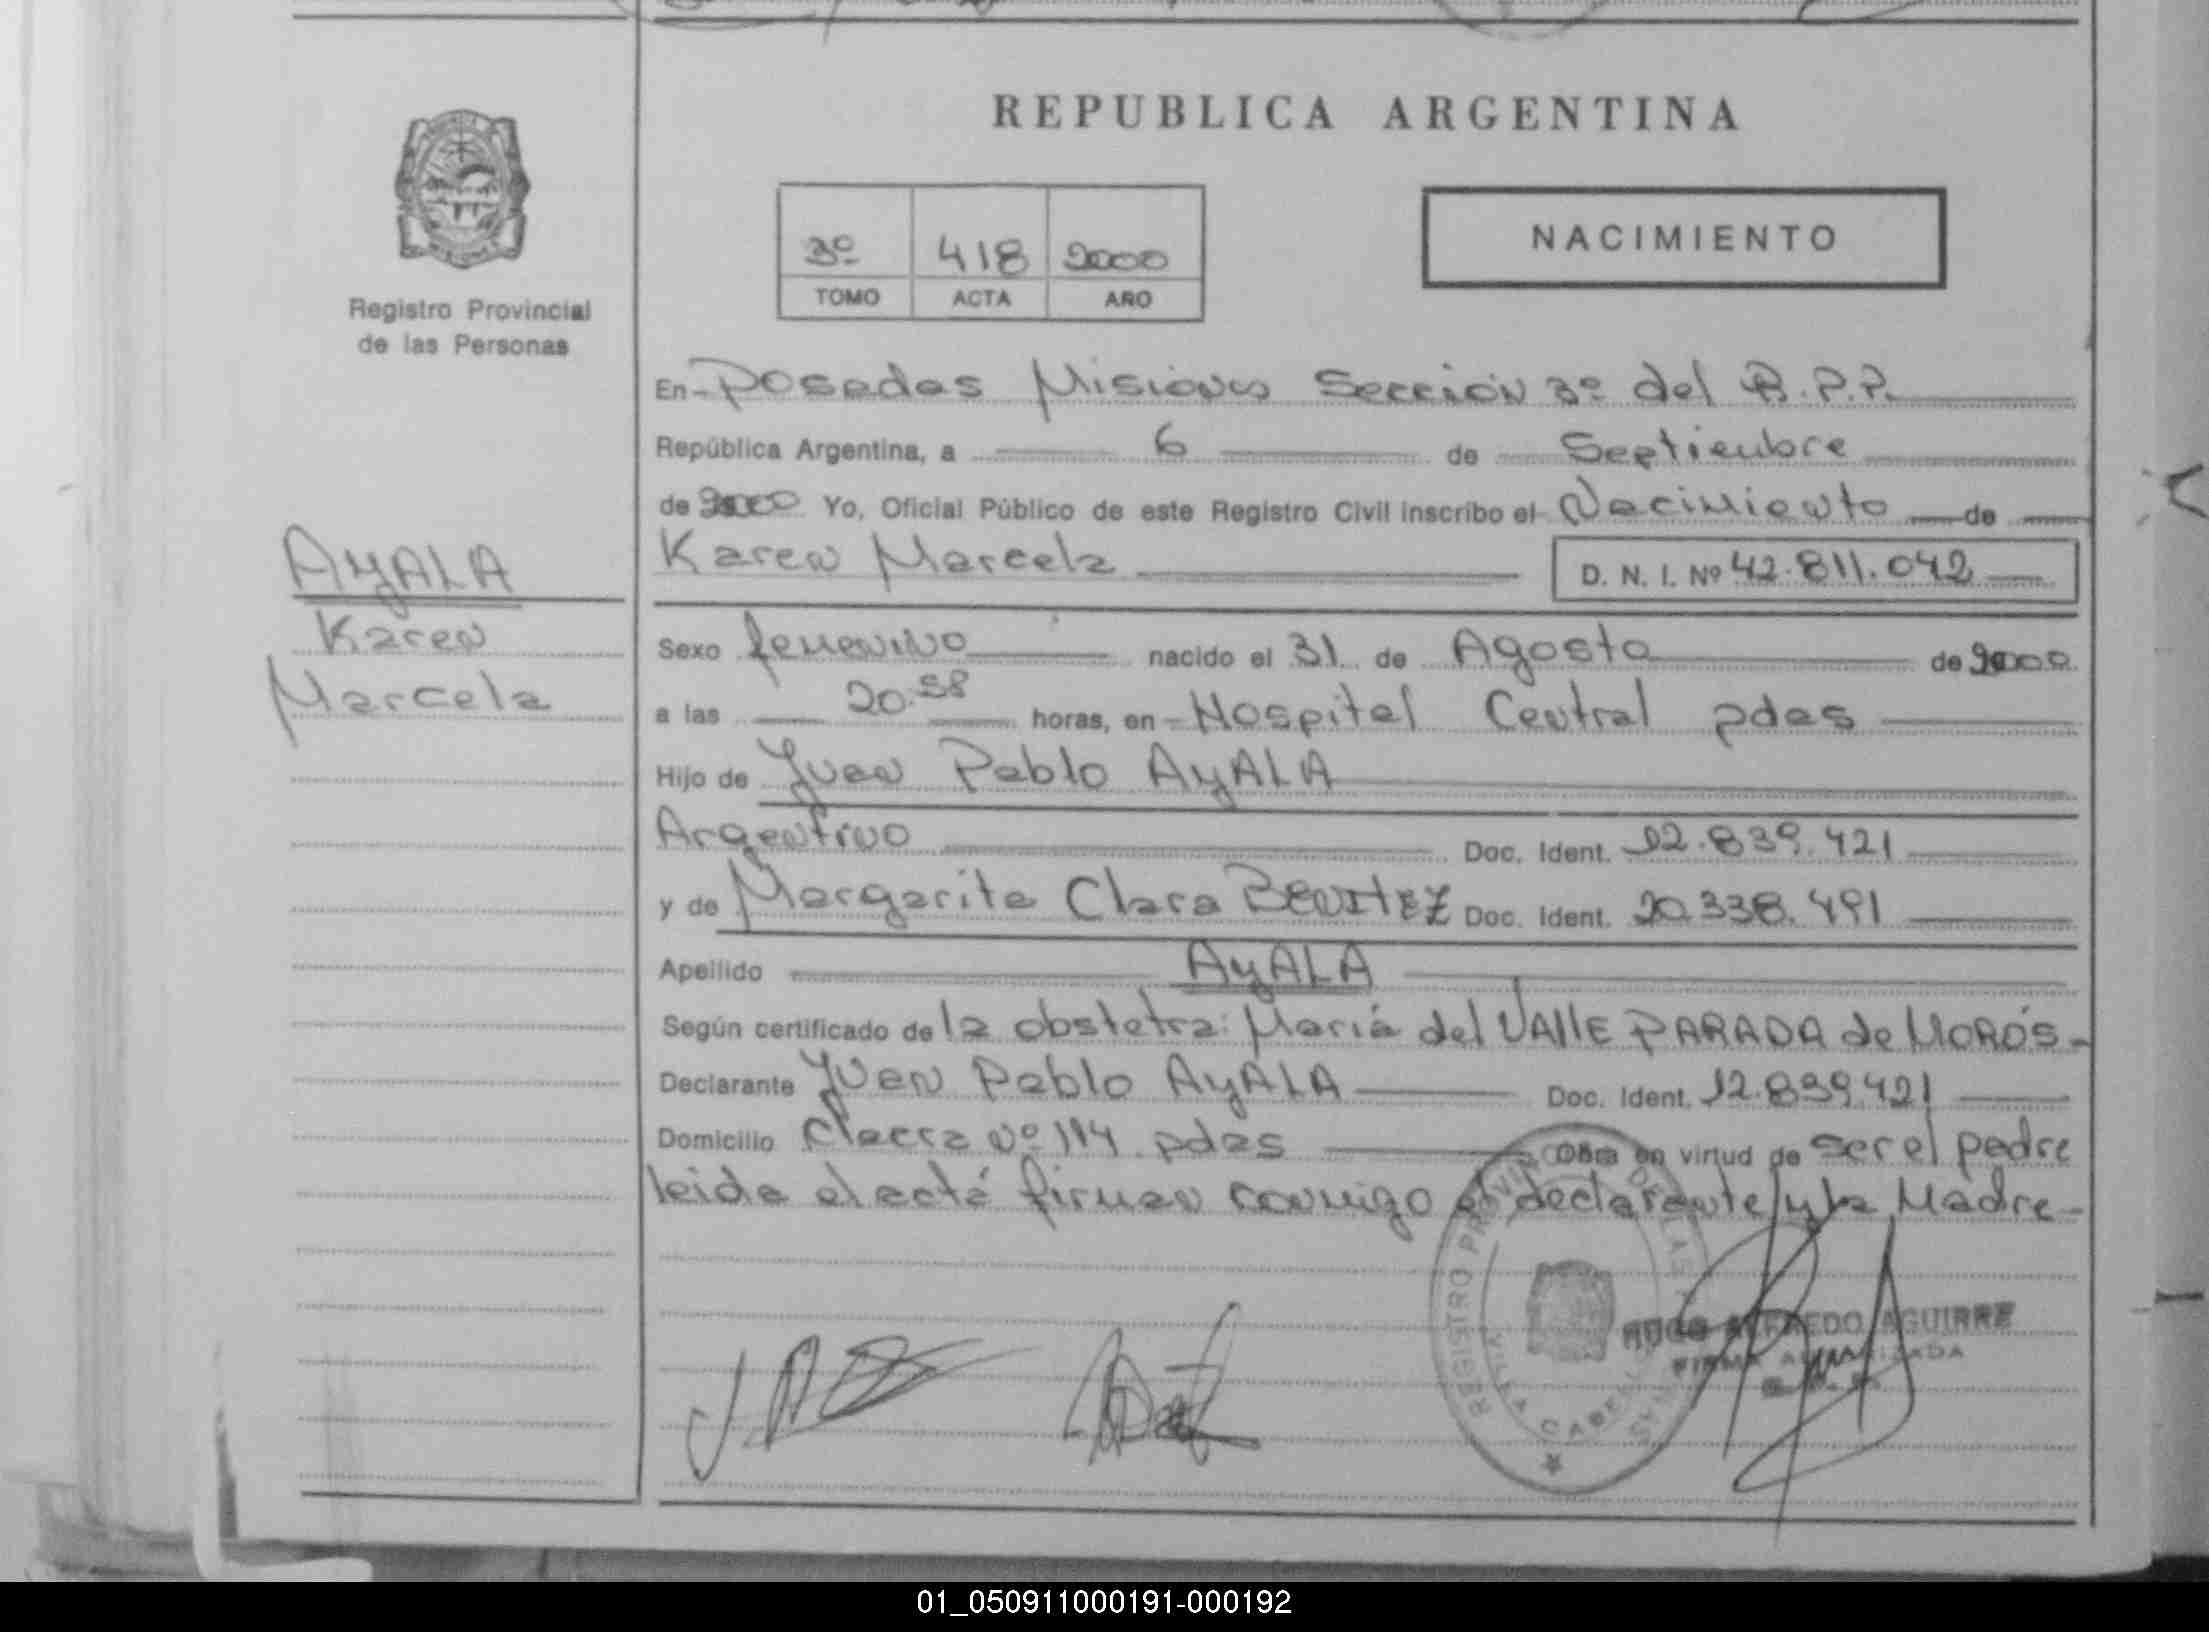 REPUBLICA ARGENTINA
Registro Provincial
de las Personas
3º 418 2000
TOMO ACTA AÑO
NACIMIENTO
En Posadas Misiones Sección 3º del R.P.P.
República Argentina, a 6 de Septiembre
de 2000 Yo, Oficial Público de este Registro Civil inscribo el Nacimiento de
Karen Marcela D. N. I. Nº 42.811.042
AyALA
Karen
Marcela
Sexo femenino nacido el 31 de Agosto de 2000
a las 20.58 horas, en Hospital Central pdas
Hijo de Juan Pablo AyALA
Argentino Doc. Ident. 12.839.421
y de Margarita Clara BENITEZ Doc. Ident. 20.338.491
Apellido AyALA
Según certificado de la obstetra: María del VAllE PARADA de MOROS-
Declarante Juan Pablo AyALA Doc. Ident. 12.839.421
Domicilio Chacra Nº 114 pdas Obra en virtud de ser el padre
leida el acta firman conmigo el declarante y la Madre-
REGISTRO PROVINCIAL DE LAS PERSONAS
HUGO ALFREDO AGUIRRE
FIRMA AUTORIZADA
01_050911000191-000192